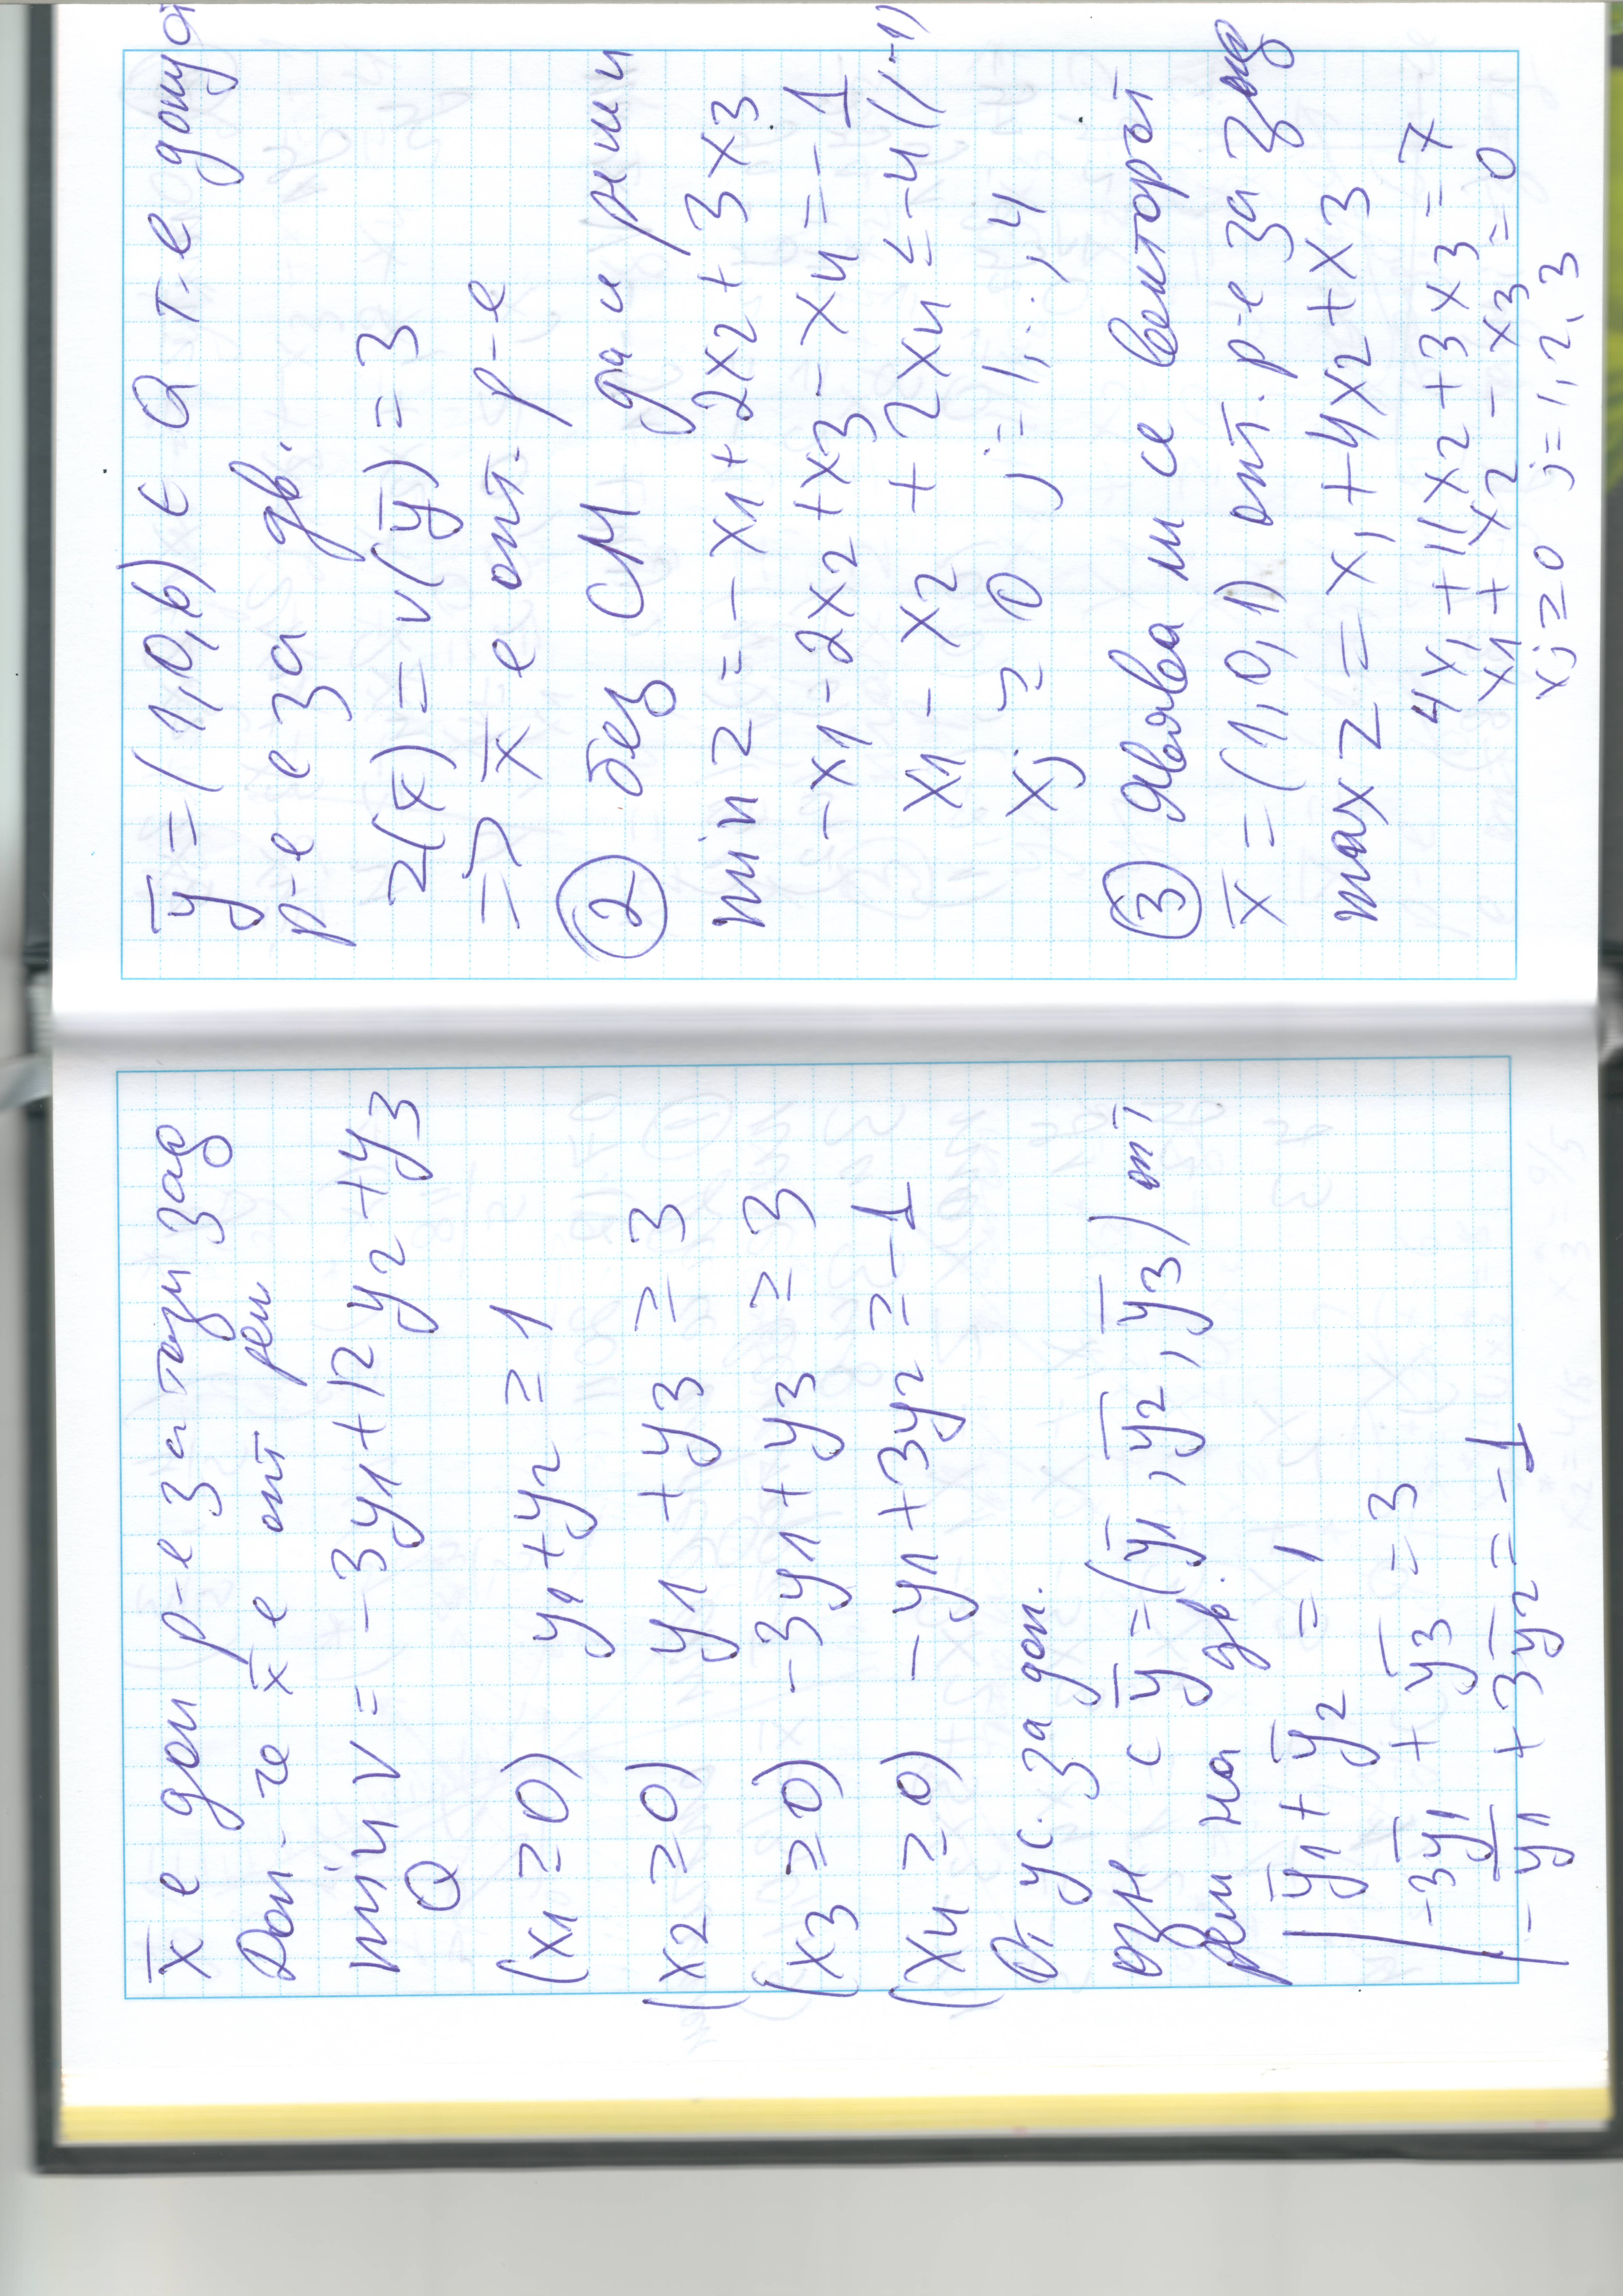 x̄ е доп р-е за тази зад
Доп. че x̄ е опт реш
min v = -3y1 + 12y2 + y3
Q
(x1 ≥ 0) y1 + y2 ≥ 1
(x2 ≥ 0) y1 + y3 ≥ 3
(x3 ≥ 0) -3y1 + y3 ≥ 3
(x4 ≥ 0) -y1 + 3y2 ≥ -1
От ус. за доп.
озн с ȳ = (ȳ1, ȳ2, ȳ3) опт
реш на дв.
ȳ1 + ȳ2 = 1
-3ȳ1 + ȳ3 = 3
-ȳ1 + 3ȳ2 = -1
ȳ = (1,0,6) ∈ Q т.е допуст
р-е е за дв.
z(x̄) = v(ȳ) = 3
=> x̄ е опт. р-е
② без СМ да и реши
min z = -x1 + 2x2 + 3x3
-x1 - 2x2 + x3 - x4 = -1
x1 - x2 + 2x4 ≤ -4 //(-1)
xj ≥ 0 j = 1,..,4
③ Явява ли се векторът
x̄ = (1,0,1) опт. р-е за зад
max z = x1 + 4x2 + x3
4x1 + 11x2 + 3x3 = 7
x1 + x2 - x3 = 0
xj ≥ 0 j = 1,2,3